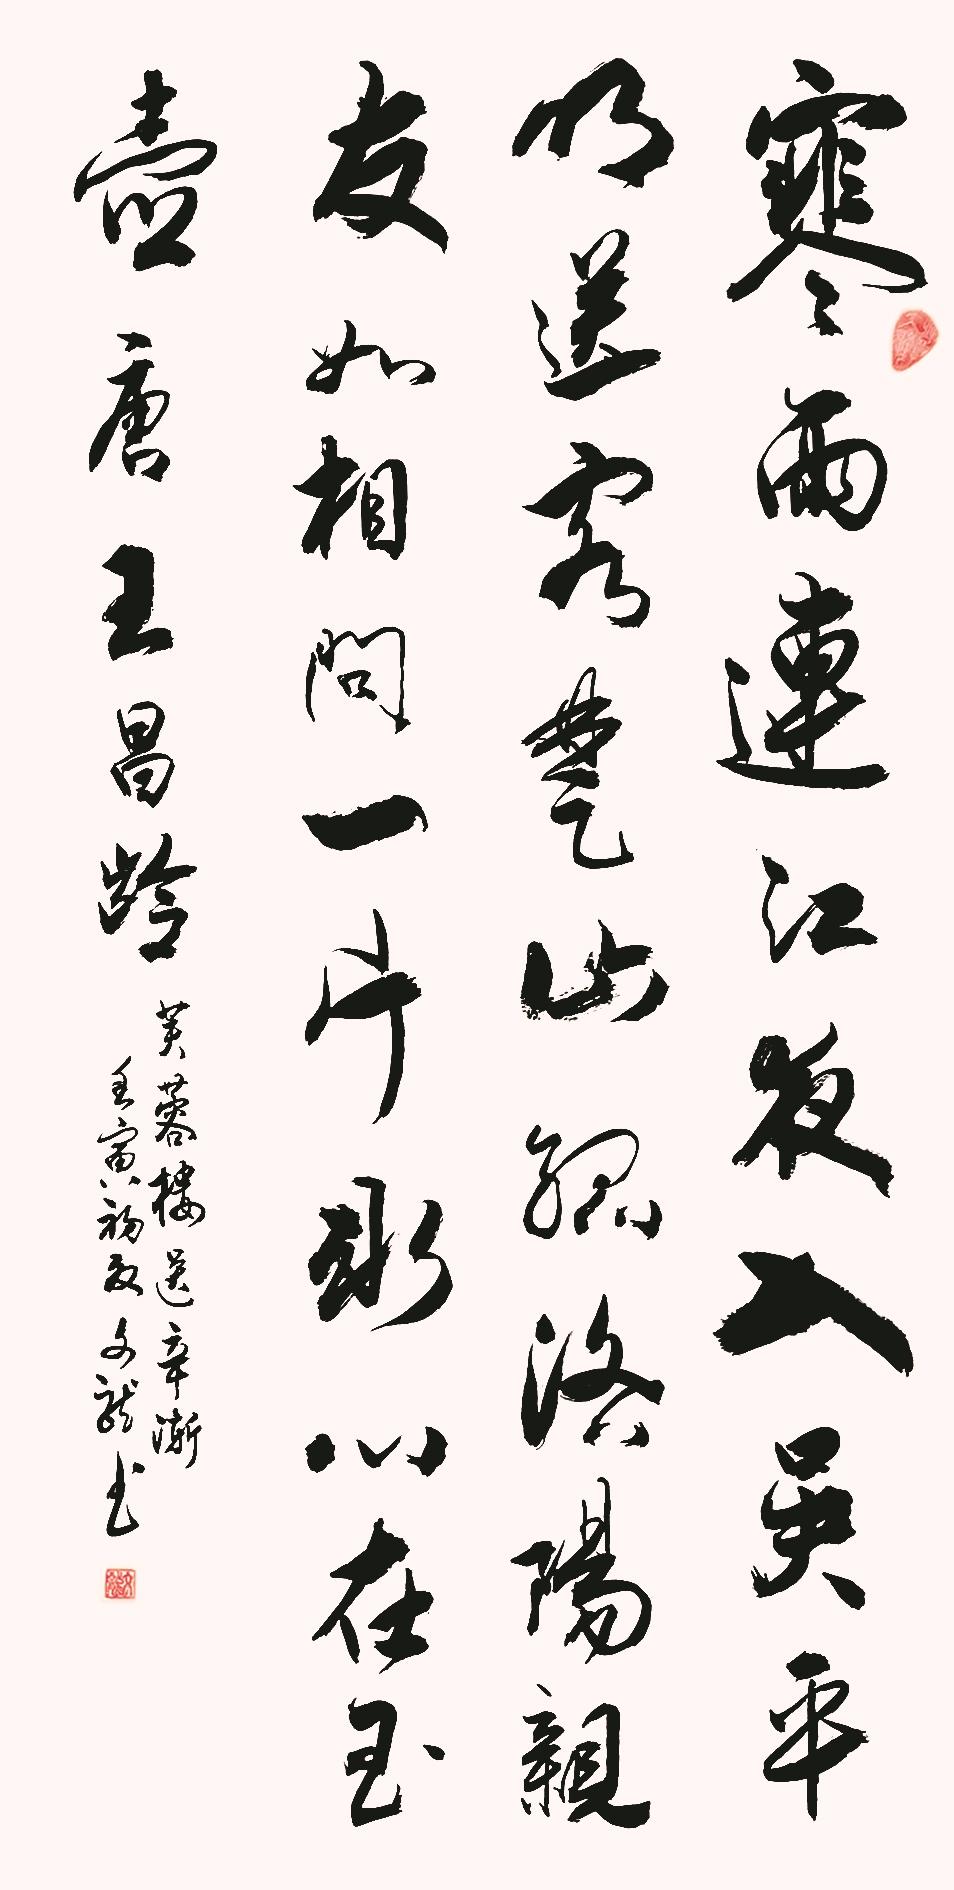 寒雨連江夜入吴平
明送客楚山孤洛陽親
友如相問一片冰心在玉
壺 唐 王昌齡
芙蓉樓送辛漸
壬寅初夏文龍书